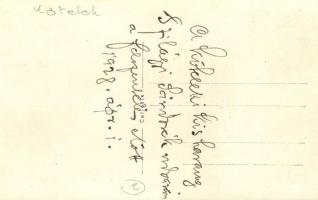 A kötelki kis harang
Szilágyi Sándorék udvarán
a felszentelés előtt
1928. ápr. 1.